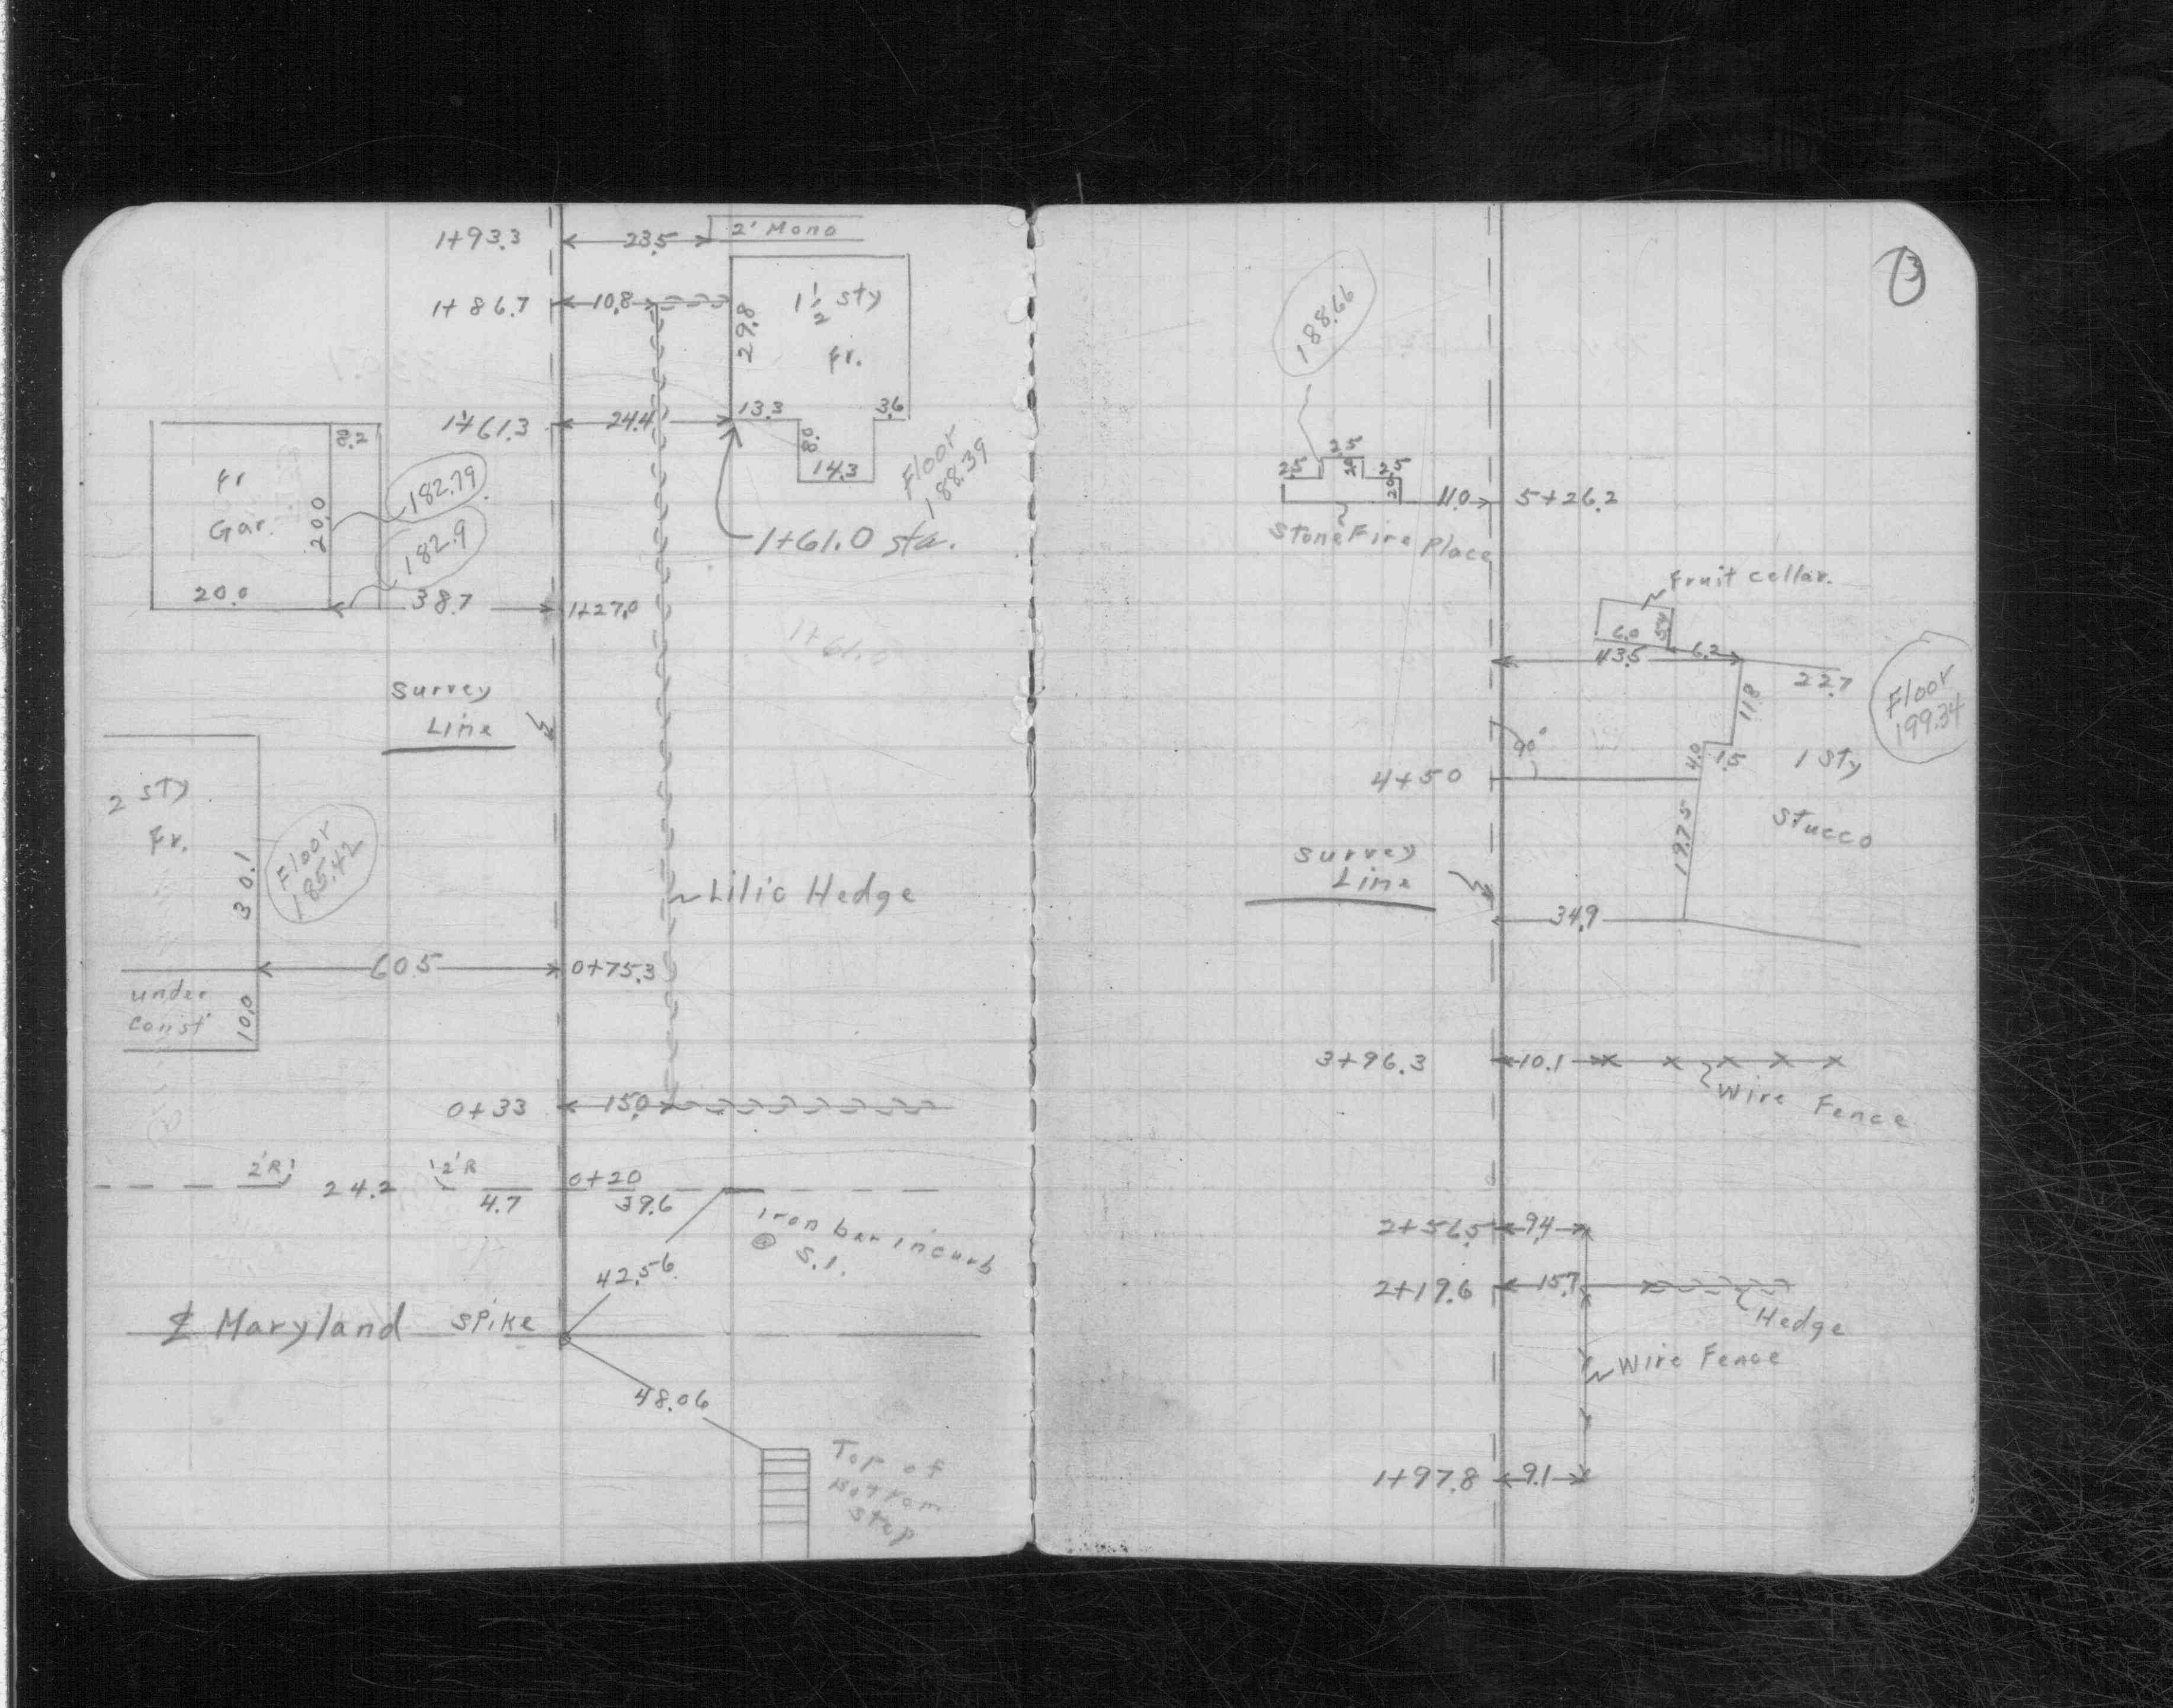 1+93.3 23.5 2' Mono
1+86.7 10.8
29.8
1½ sty
Fr.
1+61.3 24.4 13.3 3.6
8.0
14.3
Floor
188.39
1+61.0 sta.
Fr
Gar.
8.2
20.0
20.0
182.79
182.9
38.7 1+27.0
1+61.0
Survey
Line
2 sty
Fr.
30.1
Floor
185.42
Lilic Hedge
60.5 0+75.3
under
const
10.0
0+33 15.0
2'R 24.2 2'R 4.7 0+20
39.6
Iron bar in curb
@ S.I.
42.56
₵ Maryland SPIKE
48.06
Top of
Bottom
step
3
188.66
2.5 2.5 2.5
2.0 2.0
11.0 5+26.2
Stone Fire Place
Fruit cellar.
6.0 5.4
43.5 6.2
22.7
11.8
Floor
199.34
90°
4.0 1.5
1 Sty
Stucco
4+50
19.75
Survey
Line
34.9
3+96.3 10.1
Wire Fence
2+56.5 9.4
2+19.6 15.7
Hedge
Wire Fence
1+97.8 9.1